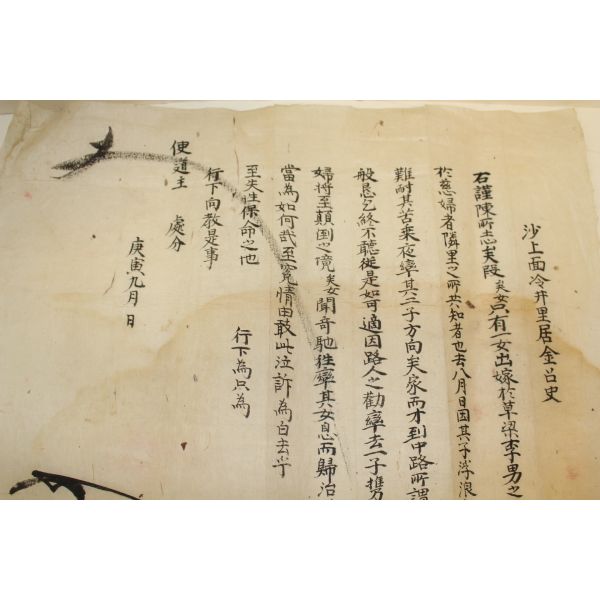 沙上面冷井里居金召史
右謹陳所志矣段矣女只有一女出嫁於草梁李男之
於慈婦者隣里之所共知者也去八月日因其子浮浪
難耐其苦乘夜率其二子方向矣家而才到中路所謂
般恳乞終不聽從是如可適因路人之勸率去一子携
婦將至顛倒之境矣女聞奇馳往率其女息而歸治
當為如何哉至寃情由敢此泣訴為白去乎
行下為只為
至失生保人命之地
行下向教是事
使道主 處分
庚寅九月 日